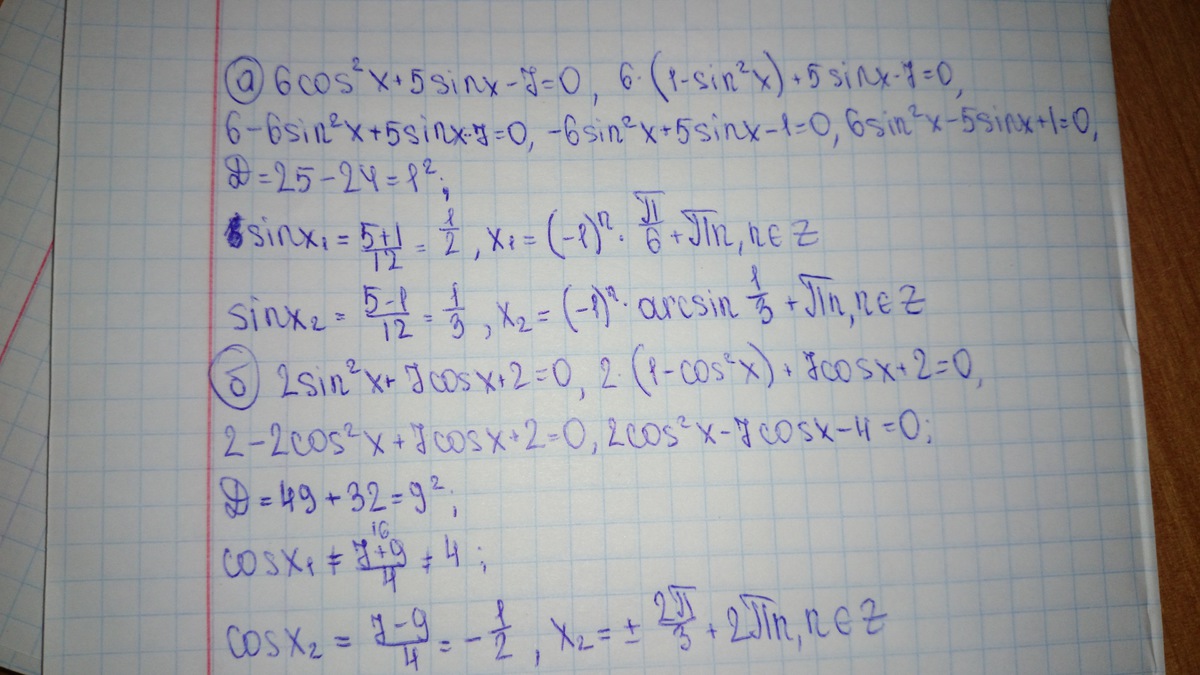 а) 6cos²x+5sinx-7=0, 6·(1-sin²x)+5sinx-7=0,
6-6sin²x+5sinx-7=0, -6sin²x+5sinx-1=0, 6sin²x-5sinx+1=0,
Д=25-24=1²;
sinx₁ = (5+1)/12 = 1/2, x₁ = (-1)ⁿ· π/6 + πn, n∈Z
sinx₂ = (5-1)/12 = 1/3, x₂ = (-1)ⁿ· arcsin 1/3 + πn, n∈Z
б) 2sin²x+7cosx+2=0, 2·(1-cos²x)+7cosx+2=0,
2-2cos²x+7cosx+2=0, 2cos²x-7cosx-4=0;
Д=49+32=9²;
cosx₁ ≠ (7+9)/4 ≠ 4;
cosx₂ = (7-9)/4 = -1/2, x₂ = ± 2π/3 + 2πn, n∈Z